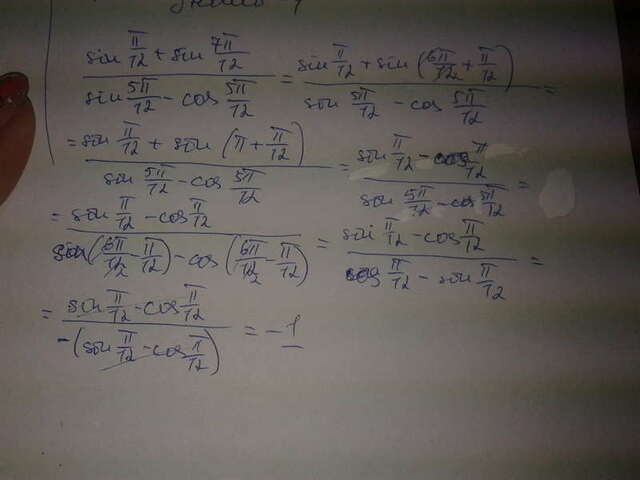 (sin π/12 + sin 7π/12) / (sin 5π/12 - cos 5π/12) = (sin π/12 + sin (6π/12 + π/12)) / (sin 5π/12 - cos 5π/12) =
= (sin π/12 + sin (π + π/12)) / (sin 5π/12 - cos 5π/12) = (sin π/12 - cos π/12) / (sin 5π/12 - cos 5π/12) =
= (sin π/12 - cos π/12) / (sin (6π/12 - π/12) - cos (6π/12 - π/12)) = (sin π/12 - cos π/12) / (cos π/12 - sin π/12) =
= (sin π/12 - cos π/12) / (-(sin π/12 - cos π/12)) = -1